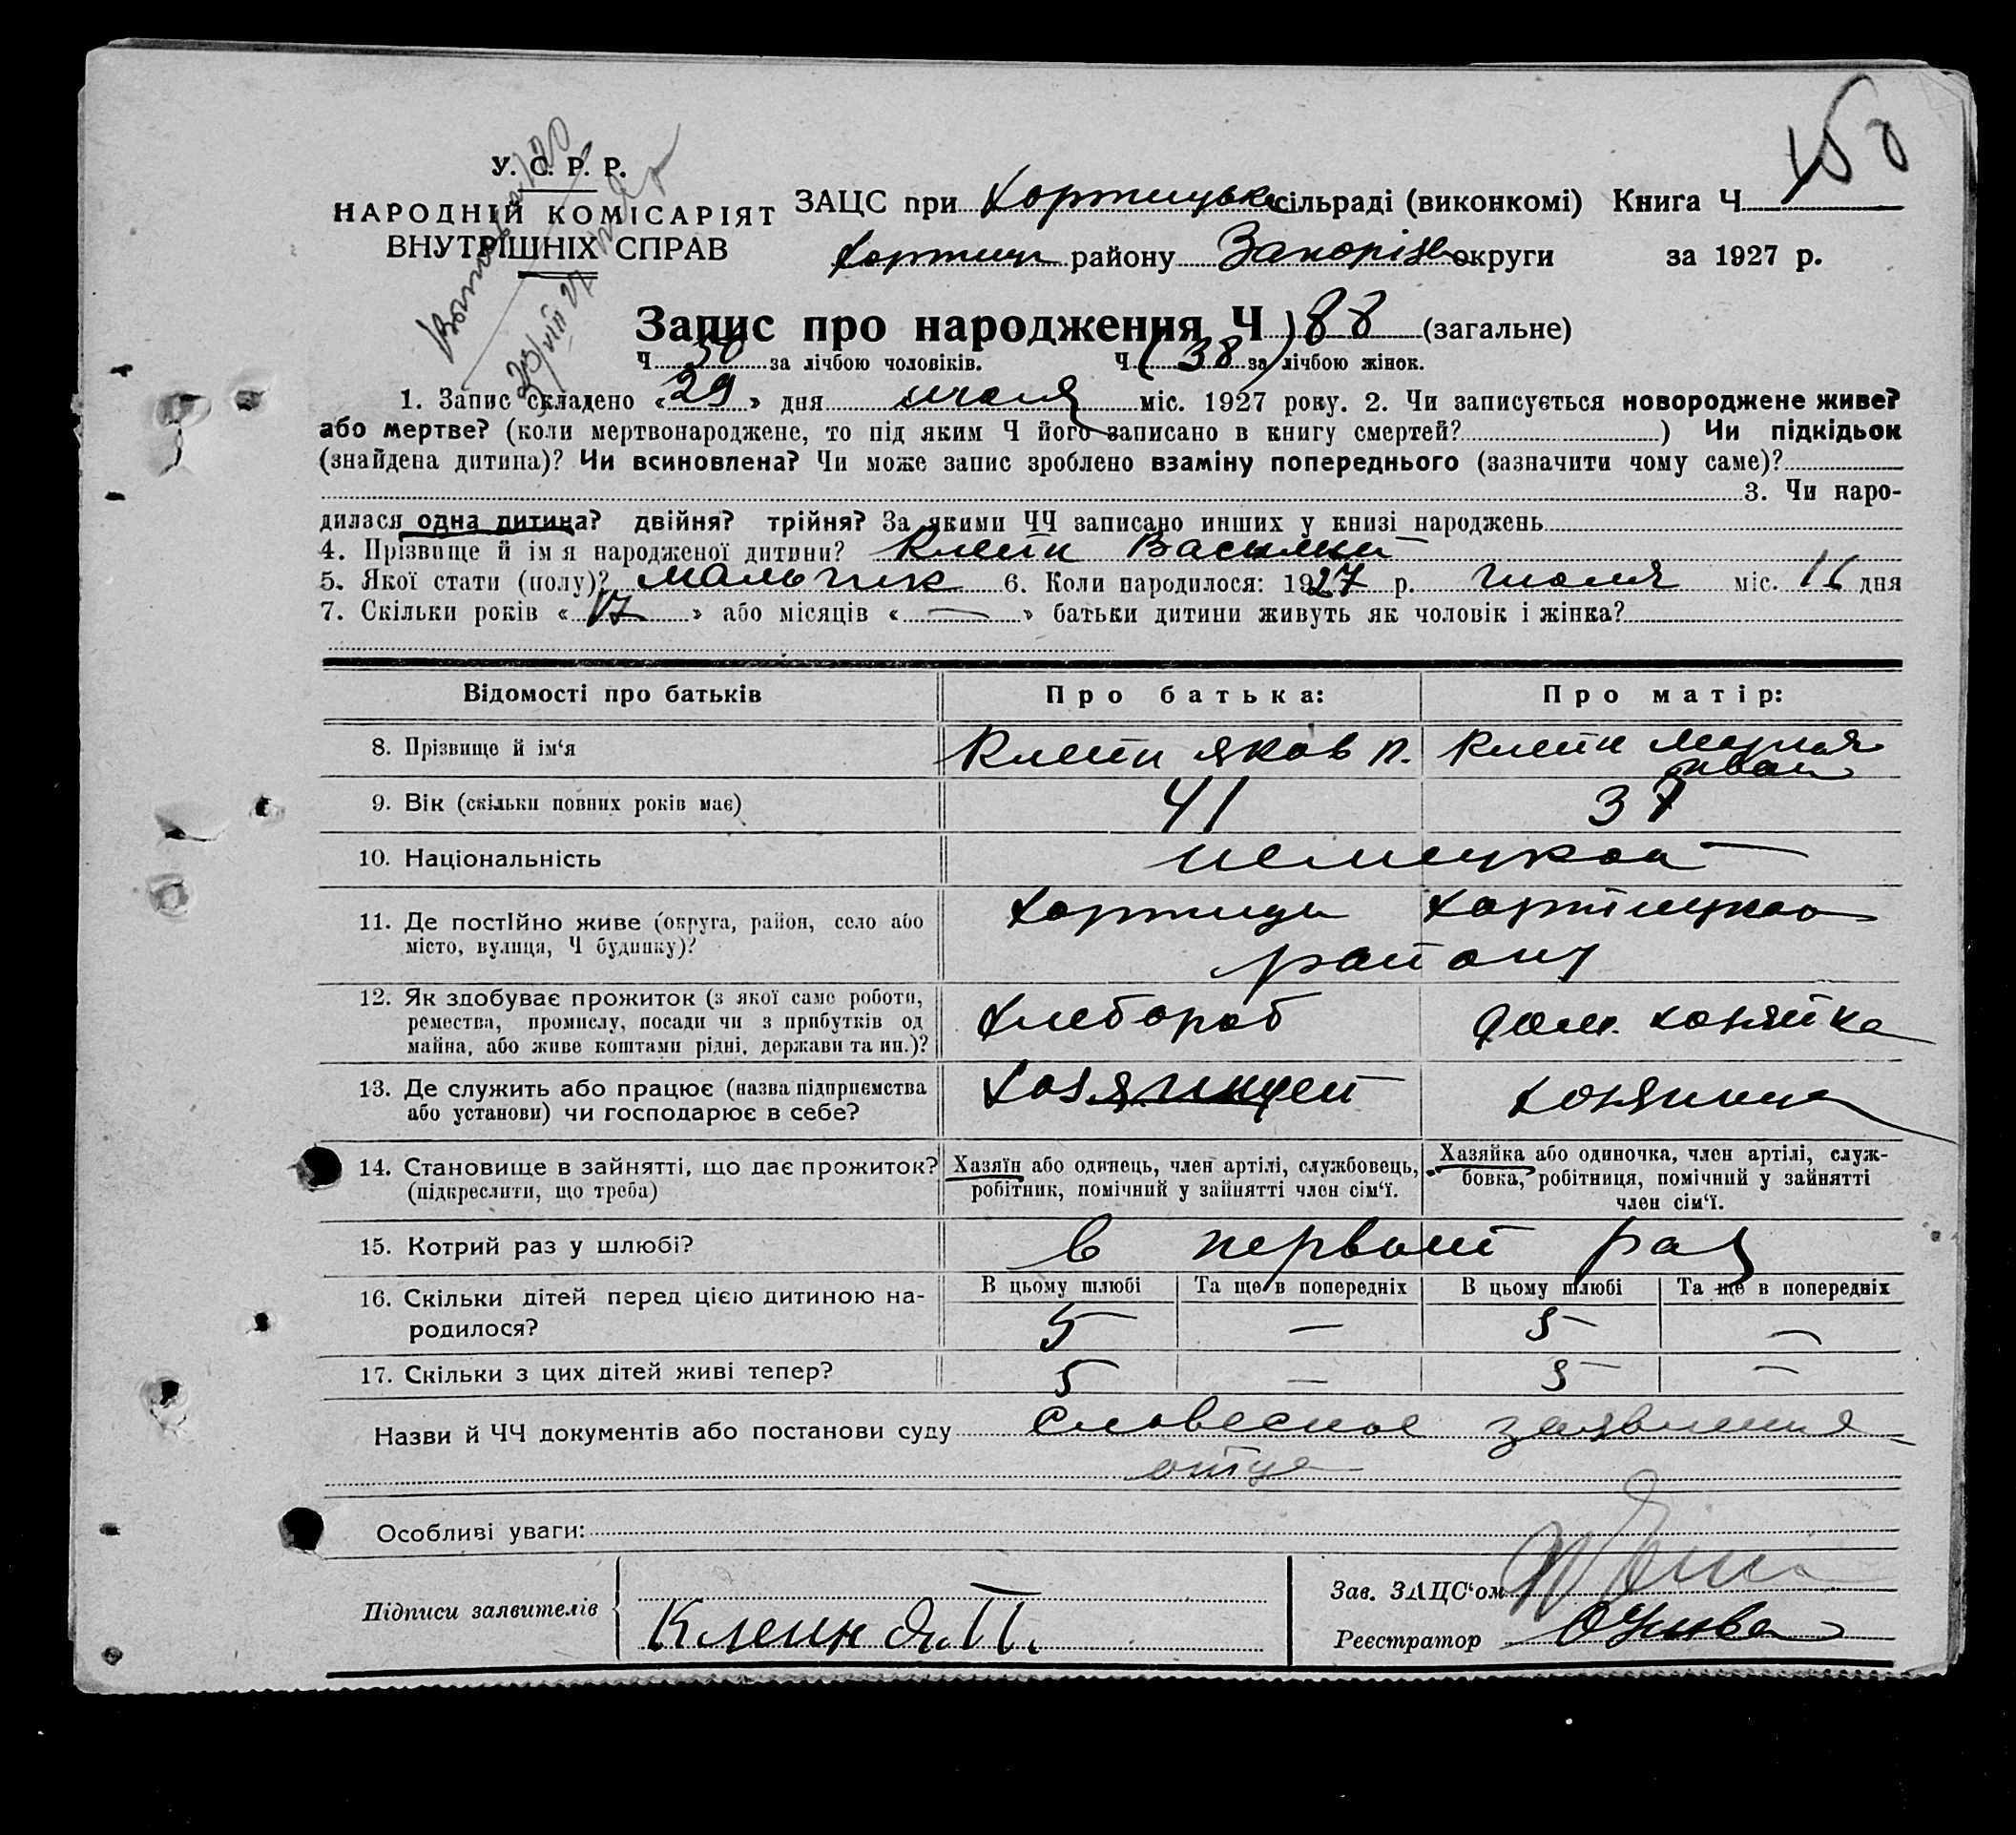 150
У. С. Р. Р.
НАРОДНІЙ КОМІСАРІЯТ
ВНУТРІШНІХ СПРАВ
ЗАЦС при Хортицьк сільраді (виконкомі) Книга Ч 1
Хортиц району Запоріз округи за 1927 р.
Запис про народження Ч 88 (загальне)
Ч 50 за лічбою чоловіків. Ч (38) за лічбою жінок.
1. Запис складено «29» дня июля міс. 1927 року. 2. Чи записується новороджене живе?
або мертве? (коли мертвонароджене, то під яким Ч його записано в книгу смертей? ) Чи підкідьок
(знайдена дитина)? Чи всиновлена? Чи може запис зроблено взаміну попереднього (зазначити чому саме)?
3. Чи наро-
дилася одна дитина? двійня? трійня? За якими ЧЧ записано инших у книзі народжень
4. Прізвище й імя народженої дитини? Клейн Василий
5. Якої стати (полу)? мальчик 6. Коли народилося: 1927 р. июля міс. 16 дня
7. Скільки років «17» або місяців «—» батьки дитини живуть як чоловік і жінка?
Відомості про батьків Про батька: Про матір:
8. Прізвище й ім‘я Клейн Яков П. Клейн Мария
Иван
9. Вік (скільки повних років має) 41 37
10. Національність немецкой
11. Де постійно живе (округа, район, село або Хортица Хортицкого
місто, вулиця, Ч будинку)? району
12. Як здобуває прожиток (з якої саме роботи, Хлебороб дом. хозяйка
ремества, промислу, посади чи з прибутків од
майна, або живе коштами рідні, держави та ин.)?
13. Де служить або працює (назва підприємства
або установи) чи господарює в себе?
14. Становище в зайнятті, що дає прожиток? Хазяїн або одинець, член артілі, службовець, Хазяйка або одиночка, член артілі, служ-
(підкреслити, що треба) робітник, помічний у зайнятті член сім‘ї. бовка, робітниця, помічний у зайнятті
член сім‘ї.
15. Котрий раз у шлюбі? в первый раз
16. Скільки дітей перед цією дитиною на- В цьому шлюбі Та ще в попередніх В цьому шлюбі Та ще в попередніх
родилося? 5 — 5 —
17. Скільки з цих дітей живі тепер? 5 — 5 —
Назви й ЧЧ документів або постанови суду словесное заявление
отца
Особливі уваги:
Зав. ЗАЦС‘ом
Підписи заявителів Клейн Я. П.
Реєстратор